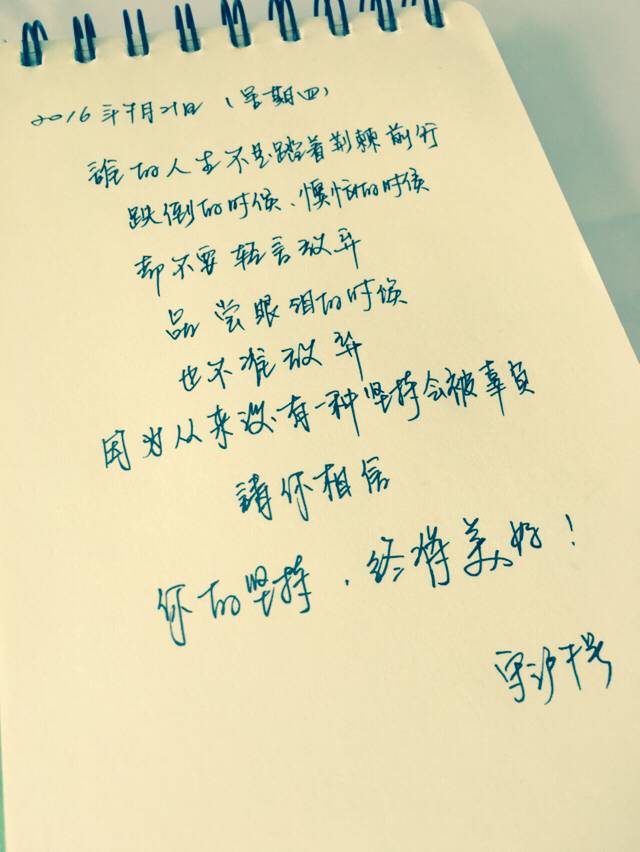 2016年7月21日（星期四）
誰的人生不是踏着荆棘前行
跌倒的时候、懊恼的时候
却不要轻言放弃
品尝眼泪的时候
也不准放弃
因为从来没有一种坚持会被辜负
請你相信
你的坚持，终将美好！